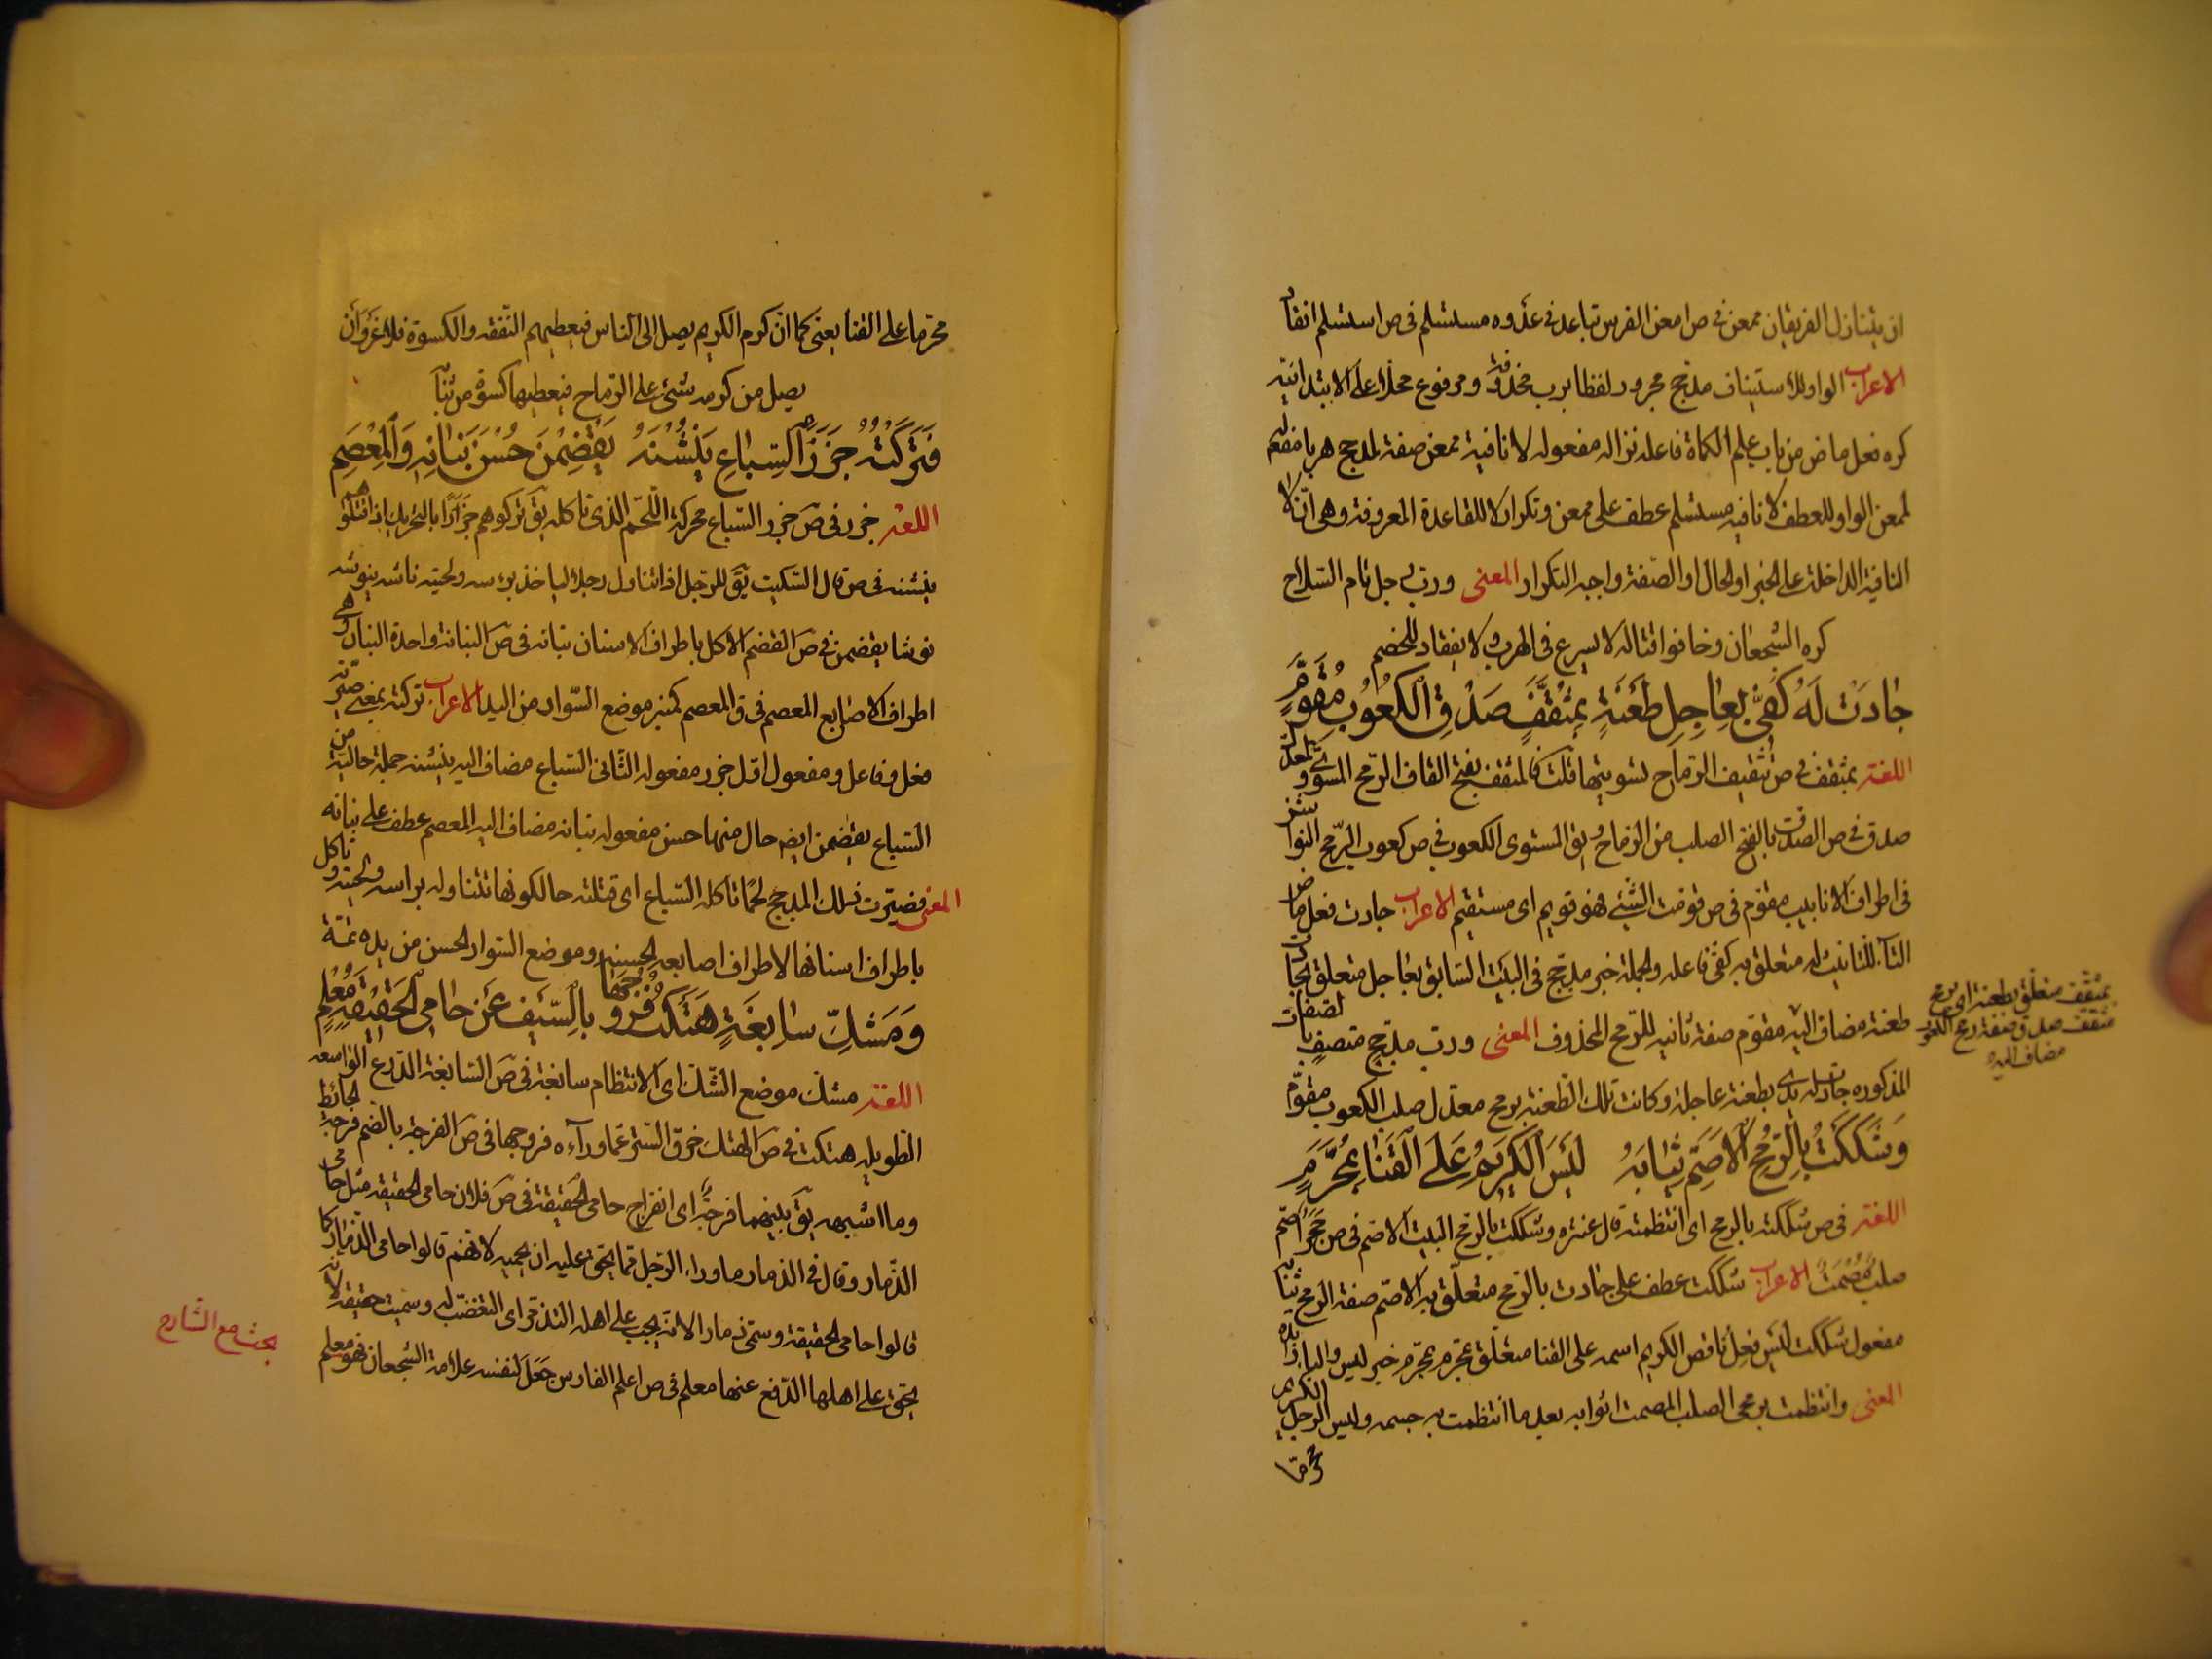 ان يتنازل الفريقان ممعن فى ص امعن الفرس تباعد فى عدوه مستسلم فى ص استسلم انقاد
الاعراب الواو للاستيناف مدجج مجرور لفظا برب محذوفة ومرفوع محلا على الابتدائية
كره فعل ماض من باب علم الكماة فاعله نزاله مفعوله لا نافية ممعن صفة لمدجج هربا مفعول له
لممعن الواو للعطف لا نافيه مستسلم عطف على ممعن وتكرار لا للقاعدة المعروفة وهى ان لا
النافية الداخلة على الخبر او الحال او الصفة واجبه التكرار المعنى ورب رجل تام السلاح
كره الشجعان وخافوا قتاله لا يسرع فى الهرب ولا ينقاد للخصم
جٰادَتْ لَهُ كَفّىٖ بِعٰاجِلِ طَعْنَةٍ بِمُثَقَّفٍ صَدْقِ الْكُعُوبِ مُقَوَّمٍ
اللغة بمثقف فى ص تثقيف الرماح تسويتها قلت فالمثقف بفتح القاف الرمح المسوى المعدل
صدق فى ص الصدق بالفتح الصلب من الرماح ويق المستوى الكعوب فى ص كعوب الرمح النواشز
فى اطراف الانابيب مقوم فى ص قومت الشئ فهو قويم اى مستقيم الاعراب جادت فعل ماض
التآء للتانيث له متعلق به كفى فاعله والجملة خبر مدجج فى البيت السابق بعاجل متعلق بجادت
طعنة مضاف اليه مقوم صفة ثانيه للرمح المحذوف المعنى ورب مدجج متصف بالصفات
المذكوره جادت له يدى بطعنة عاجلة وكانت تلك الطعنة برمح معدل صلب الكعوب مقوم
وَشَكَكْتُ بِالرُّمْحِ الْاَصَمِّ ثِيٰابَهُ لَيْسَ الْكَرِيمُ عَلَى الْقَنٰا بِمُحَرَّمٍ
اللغة فى ص شككته بالرمح اى انتظمته قال عنتره وشككت بالرمح البيت الاصم فى ص حجر اصم
صلب مصمت الاعراب شككت عطف على جادت بالرمح متعلق به الاصم صفة الرمح ثيابه
مفعول شككت ليس فعل ناقص الكريم اسمه على القنا متعلق بمحرم بمحرم خبر ليس والباء زائدة
المعنى وانتظمت برمحى الصلب المصمت اثوابه بعد ما انتظمت به جسمه وليس الرجل الكريم
محرما
بمثقف متعلق بطعنة اى برمح
مثقف صدق صفة رمح الكعوب
مضاف اليه
محرما على القنا يعنى كما ان كرم الكريم يصل الى الناس فيعطيهم النفقه والكسوة فلا غرو ان
يصل من كرمه شئ على الرماح فيعطيها كسوة من ثيابه
فَتَرَكْتُهُ جَزَرَ السِّبٰاعِ يَنُشْنَهُ يَقْضِمْنَ حُسْنَ بَنٰانِهِ وَالْمِعْصَمِ
اللغة جزر فى ص جزر السباع محركة اللحم الذى تاكله يق تركوهم جزرا بالتحريك اذا قتلوهم
ينشنه فى ص قال السكيت يق للرجل اذا تناول رجلا لياخذ براسه ولحيته ناشه ينوشه
نوشا يقضمن فى ص القضم الاكل باطراف الاسنان بنانه فى ص البنانة واحدة البنان وهى
اطراف الاصابع المعصم فى ق المعصم كمنبر موضع السوار من اليد الاعراب تركته بمعنى صيرته
فعل وفاعل ومفعول اول جزر مفعوله الثانى السباع مضاف اليه ينشنه جملة حالية من
السباع يقضمن ايضا حال منها حسن مفعوله بنانه مضاف اليه المعصم عطف على بنانه
المعنى فصيرت ذلك المدجج لحما تاكله السباع اى قتلته حالكونها تتناوله براسه ولحيته وتاكل
باطراف اسنانها لاطراف اصابعه الحسنه وموضع السوار الحسن من يده ثمة
وَمِشَكِّ سٰابِغَةٍ هَتَكْتُ فُرُوجَهٰا بِالسَّيْفِ عَنْ حٰامِى الْحَقِيقَةِ مُعْلِمٍ
اللغة مشك موضع الشك اى الانتظام سابغة فى ص السابغة الدرع الواسعه
الطويله هتكت فى ص الهتك خرق الستر عما ورآءه فروجها فى ص الفرجة بالضم فرجة الحائط
وما اشبهه يق بينهما فرجة اى انفراج حامى الحقيقة فى ص فلان حامى الحقيقه مثل حامى
الذمار وقال فى الذمار ما وراء الرجل مما يحق عليه ان يحميه لانهم قالوا حامى الذمار كما
قالوا حامى الحقيقة وسمى ذمارا لانه يجب على اهله التذمر اى التغضب له وسميت حقيقه لانه
يحق على اهلها الدفع عنها معلم فى ص اعلم الفارس جعل لنفسه علامة الشجعان فهو معلم
بحث مع الشارح